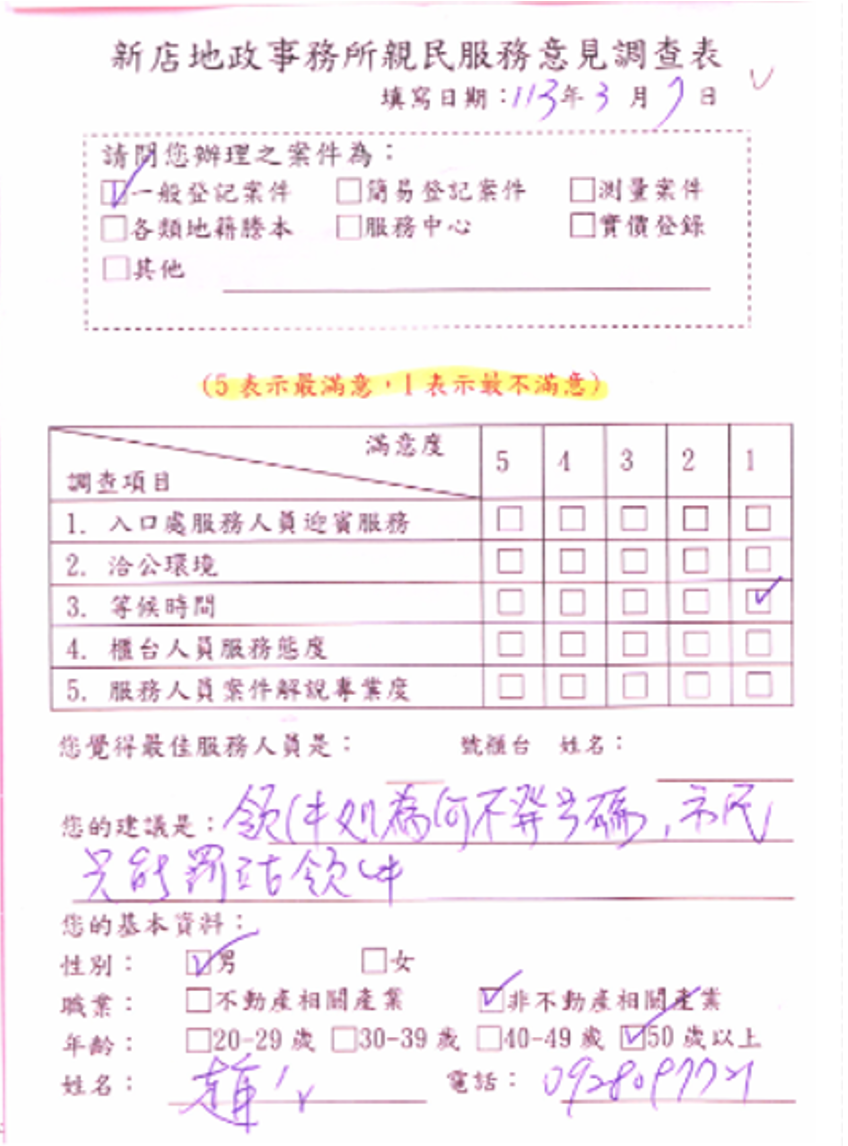 新店地政事務所親民服務意見調查表
填寫日期：113年3月7日
請問您辦理之案件為：
☑一般登記案件 □簡易登記案件 □測量案件
□各類地籍謄本 □服務中心 □實價登錄
□其他
(5表示最滿意，1表示最不滿意)
滿意度 5 4 3 2 1
調查項目
1. 入口處服務人員迎賓服務 □ □ □ □ □
2. 洽公環境 □ □ □ □ □
3. 等候時間 □ □ □ □ ☑
4. 櫃台人員服務態度 □ □ □ □ □
5. 服務人員案件解說專業度 □ □ □ □ □
您覺得最佳服務人員是： 號櫃台 姓名：
您的建議是：領件処為何不發号碼，市民
只能罰站領件
您的基本資料：
性別： ☑男 □女
職業： □不動產相關產業 ☑非不動產相關產業
年齡： □20-29歲 □30-39歲 □40-49歲 ☑50歲以上
姓名： 電話：